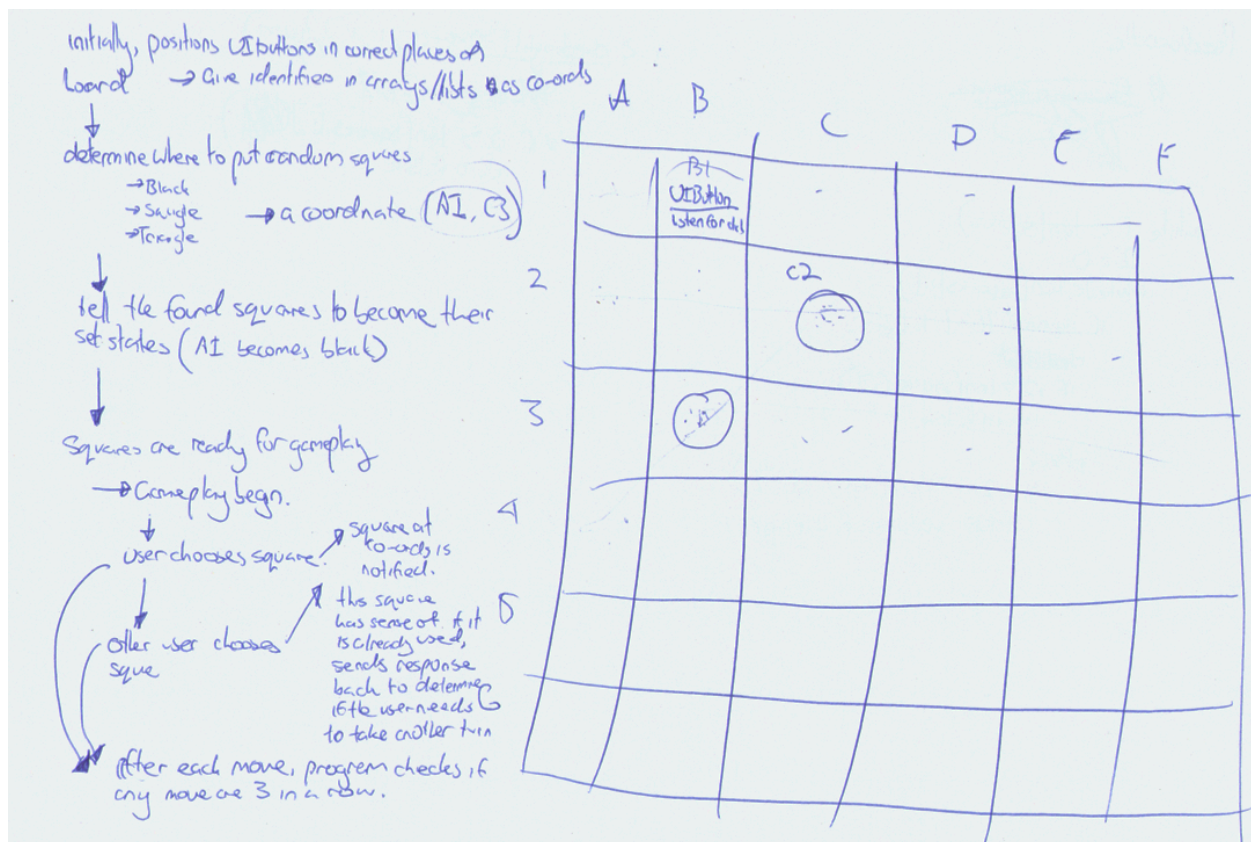 initially, positions UI buttons in correct places on
board → Give identifiers in arrays/lists as co-ords
determine where to put random squares
→ Black
→ a coordnate (A1, C3)
tell the found squares to become their
set states (A1 becomes black)
squares are ready for gameplay
→ Gameplay begn.
user chooses square.
square at
co-ords is
notified.
other user chooses
sque
this square
has sense of if it
is already used,
sends response
back to determine
if the user needs
to take another turn
After each move, program checks if
any move are 3 in a row.
A B C D E F
1
B1
UIButton
listen for
2
C2
3
4
5